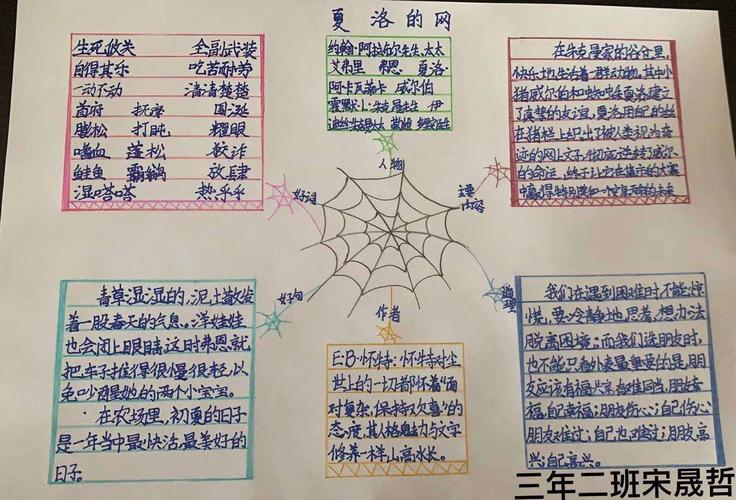 夏洛的网
生死攸关 全副武装
自得其乐 吃苦耐劳
一动不动 清清楚楚
首府 抚摩 国涎
膨松 打盹 耀眼
嗜血 蓬松 狡诈
鲑鱼 霸鞴 放肆
湿嗒嗒 热乎乎
好词
约翰·阿拉布尔先生、太太
艾弗里 弗恩 夏洛
阿卡瓦蒂卡 威尔伯
霍默·L·朱克曼先生 伊
迪丝·朱克曼太太
人物
在朱克曼家的谷仓里,
快乐地生活着一群动物,其中小
猪威尔伯和蜘蛛夏洛建立
了真挚的友谊,夏洛用自己的丝
在猪栏上织出了被人类视为奇
迹的网上文字,彻底逆转了威尔
的命运,终于让它在集市的大赛
中赢得特别奖和一个安享天命的未来
主要
内容
青草湿湿的,泥土散发
着一股春天的气息。洋娃娃
也会闭上眼睛,这时弗恩就
把车子推得很慢很慢很轻,以
免吵醒她的两个小宝宝。
在农场里,初夏的日子
是一年当中最快活最美好的
日子。
好句
作者
E·B·怀特:怀特对尘
世上的一切都怀着“面
对复杂,保持欢喜”的
态度,其人格魅力与文字
修养一样山高水长。
道理
我们在遇到困难时,不能惊
慌,要冷静地思考,想办法
脱离困境;而我们选朋友时,
也不能只看外表,最重要的是,朋
友应该有福共享,有难同当,朋友幸
福,自己幸福;朋友伤心;自己伤心
朋友难过;自己也难过;朋友高
兴;自己高兴。
三年二班宋晟哲